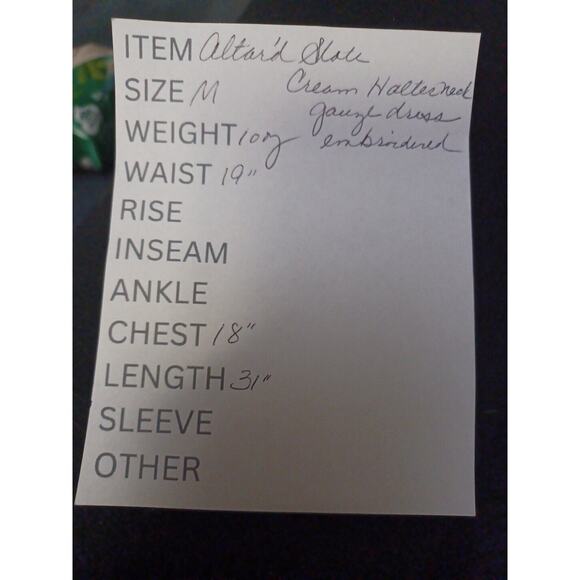 ITEM Altar'd State
SIZE M Cream Halter neck
gauze dress
WEIGHT 10 oz embroidered
WAIST 19"
RISE
INSEAM
ANKLE
CHEST 18"
LENGTH 31"
SLEEVE
OTHER